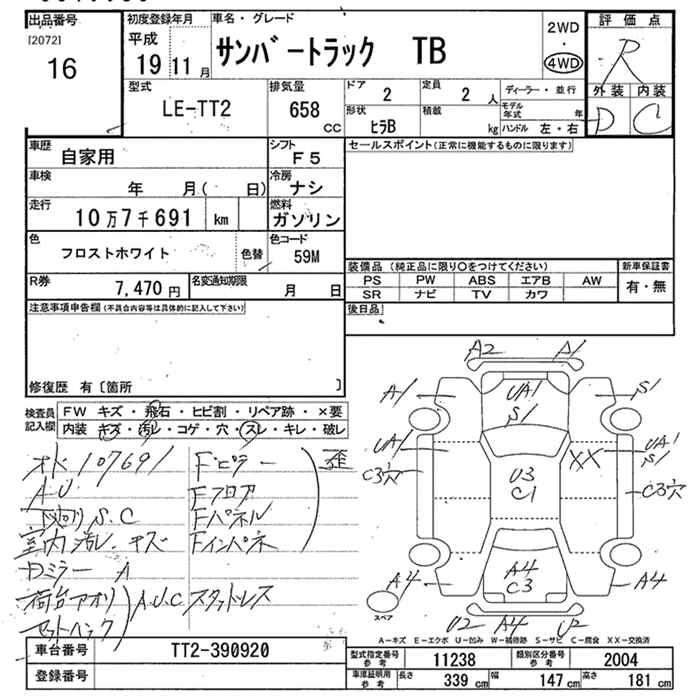 出品番号
[2072]
16
初度登録年月
平成
19 11 月
車名・グレード
サンバートラック TB
2WD
・
4WD
評価点
R
外装 内装
D C
型式
LE-TT2
排気量
658
CC
ドア
2
定員
2 人
形状
ヒラB
積載
kg
ディーラー・並行
モデル年式 年
ハンドル 左・右
車歴
自家用
シフト
F5
車検
年 月( 日)
冷房
ナシ
走行
10万7千691 km
燃料
ガソリン
色
フロストホワイト
色替
色コード
59M
R券
7,470 円
名変通知期限
月 日
セールスポイント(正常に機能するものに限ります)
装備品(純正品に限り〇をつけてください)
新車保証書
PS PW ABS エアB AW
SR ナビ TV カワ
有・無
後日品
注意事項申告欄(不具合内容等は具体的に記入して下さい)
修復歴 有〔箇所 〕
検査員記入欄
FW キズ・飛石・ヒビ割・リペア跡・×要
内装 キズ・汚レ・コゲ・穴・スレ・キレ・破レ
オド107691
A.U
下回りS.C
室内汚レ.キズ
Dミラー A
荷台アオリ
A.U.C
Fピラー
Fフロア
Fパネル
Fインパネ
歪
スタッドレス
A2 A1
A1 UA1 S1
S1
UA1 XX UA1
S1
C3穴 U3 C1 C3穴
A4 A4 C3 A4
スペア
U2 A4 U2
A-キズ E-エクボ U-凹み W-補修跡 S-サビ C-腐食 XX-交換済
車台番号
TT2-390920
登録番号
型式指定番号
参考
11238
類別区分番号
参考
2004
車庫証明用
参考
長さ
339 cm
幅
147 cm
高さ
181 cm